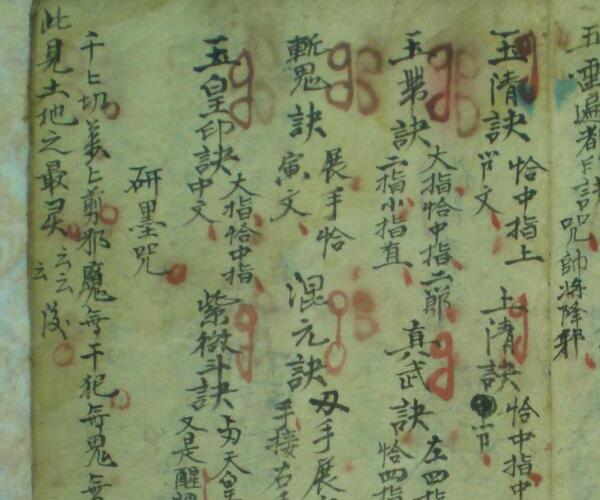 五雷遍都
咒帥將降邪
玉清訣
恰中指上
文
上清訣
恰中指中
玉帝訣
大指恰中指二節
二指小指直
真武訣
左四指
恰四指
斬鬼訣
展手恰
寅文
混元訣
双手展
手接右手
玉皇印訣
大指恰中指
中文
紫微斗訣
天皇
又是醒
研墨咒
千上切姜上剪邪魔每干犯每鬼每
此見土地之最灵云云後